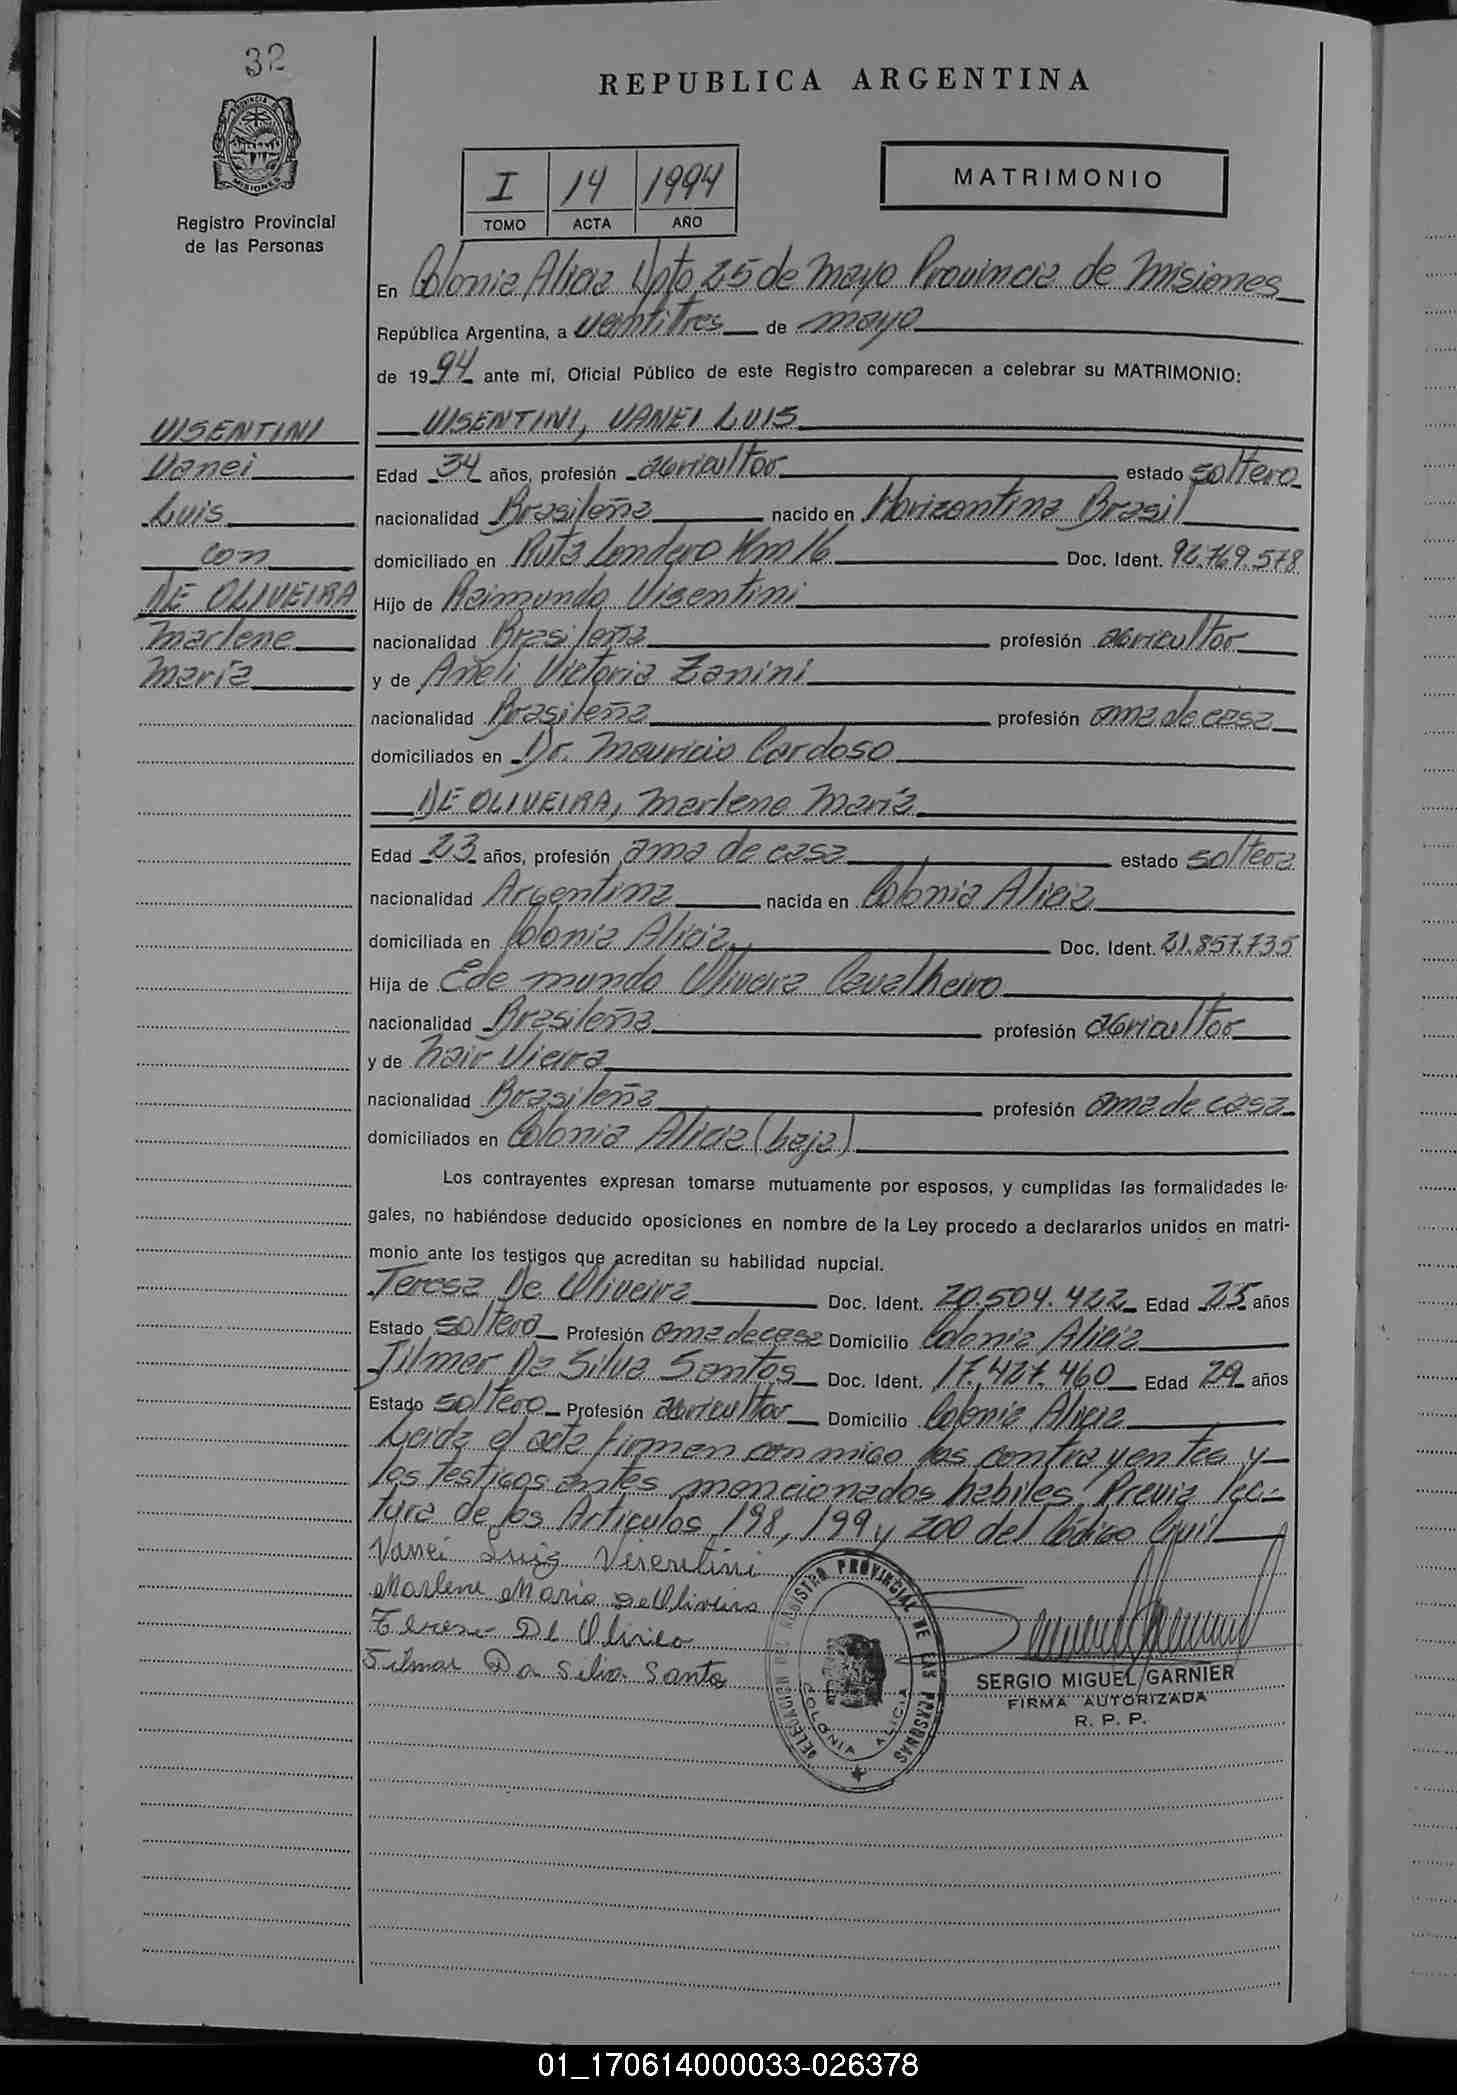 32
REPUBLICA ARGENTINA
PROVINCIA DE
MISIONES
Registro Provincial
de las Personas
I 14 1994
TOMO ACTA AÑO
MATRIMONIO
En Colonia Alicia Dpto 25 de mayo Provincia de Misiones
República Argentina, a veintitres de mayo
de 1994 ante mí, Oficial Público de este Registro comparecen a celebrar su MATRIMONIO:
VISENTINI
Vanei
Luis
con
DE OLIVEIRA
Marlene
María
VISENTINI, VANEI LUIS
Edad 34 años, profesión agricultor estado soltero
nacionalidad Brasileña nacido en Horizontina Brasil
domiciliado en Ruta Londero Km 16 Doc. Ident. 92.769.578
Hijo de Raimundo Visentini
nacionalidad Brasileña profesión agricultor
y de Aneli Victoria Zanini
nacionalidad Brasileña profesión ama de casa
domiciliados en Dr. Mauricio Cardoso
DE OLIVEIRA, Marlene María
Edad 23 años, profesión ama de casa estado soltera
nacionalidad Argentina nacida en Colonia Alicia
domiciliada en Colonia Alicia Doc. Ident. 21.857.735
Hija de Ede mundo Oliveira Cavalheiro
nacionalidad Brasileña profesión agricultor
y de Nair Vieira
nacionalidad Brasileña profesión ama de casa
domiciliados en Colonia Alicia (baja)
Los contrayentes expresan tomarse mutuamente por esposos, y cumplidas las formalidades le-
gales, no habiéndose deducido oposiciones en nombre de la Ley procedo a declararlos unidos en matri-
monio ante los testigos que acreditan su habilidad nupcial.
Teresa De Oliveira Doc. Ident. 20.504.422 Edad 25 años
Estado soltera Profesión ama de casa Domicilio Colonia Alicia
Jilmar Da Silva Santos Doc. Ident. 17.427.460 Edad 29 años
Estado soltero Profesión agricultor Domicilio Colonia Alicia
Leida el acta firman con migo los contrayentes y
los testigos antes mencionados habiles. Previa lec-
tura de los Articulos 198, 199 y 200 del Código Civil
Vanei Luis Visentini
Marlene Maria De Oliveira
Teresa De Oliveira
Jilmar Da Silva Santos
DELEGACION DEL REGISTRO PROVINCIAL DE LAS PERSONAS
COLONIA ALICIA
SERGIO MIGUEL GARNIER
FIRMA AUTORIZADA
R. P. P.
01_170614000033-026378